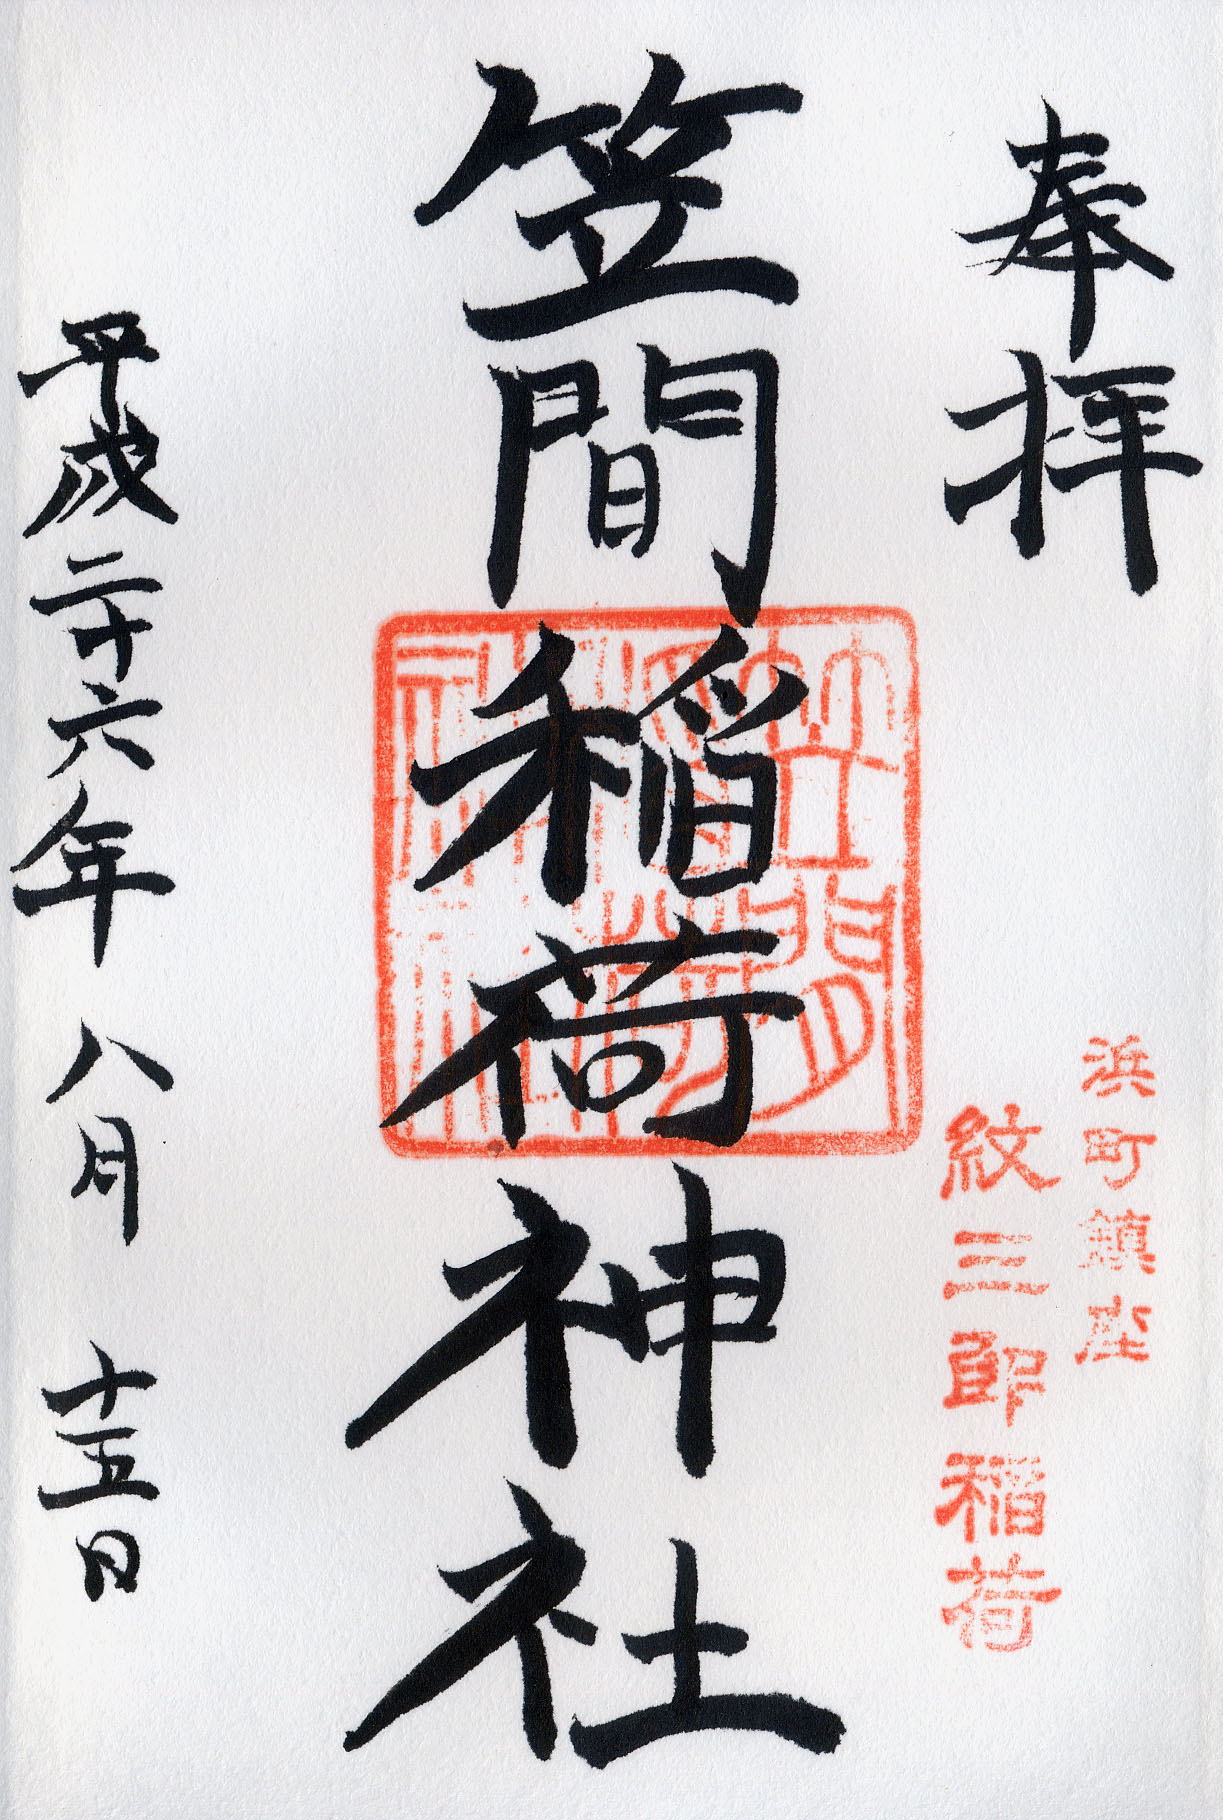 奉拝
浜町鎮座
紋三郎稲荷
笠間稲荷神社
笠間
稲荷
神社
平成二十六年八月十五日